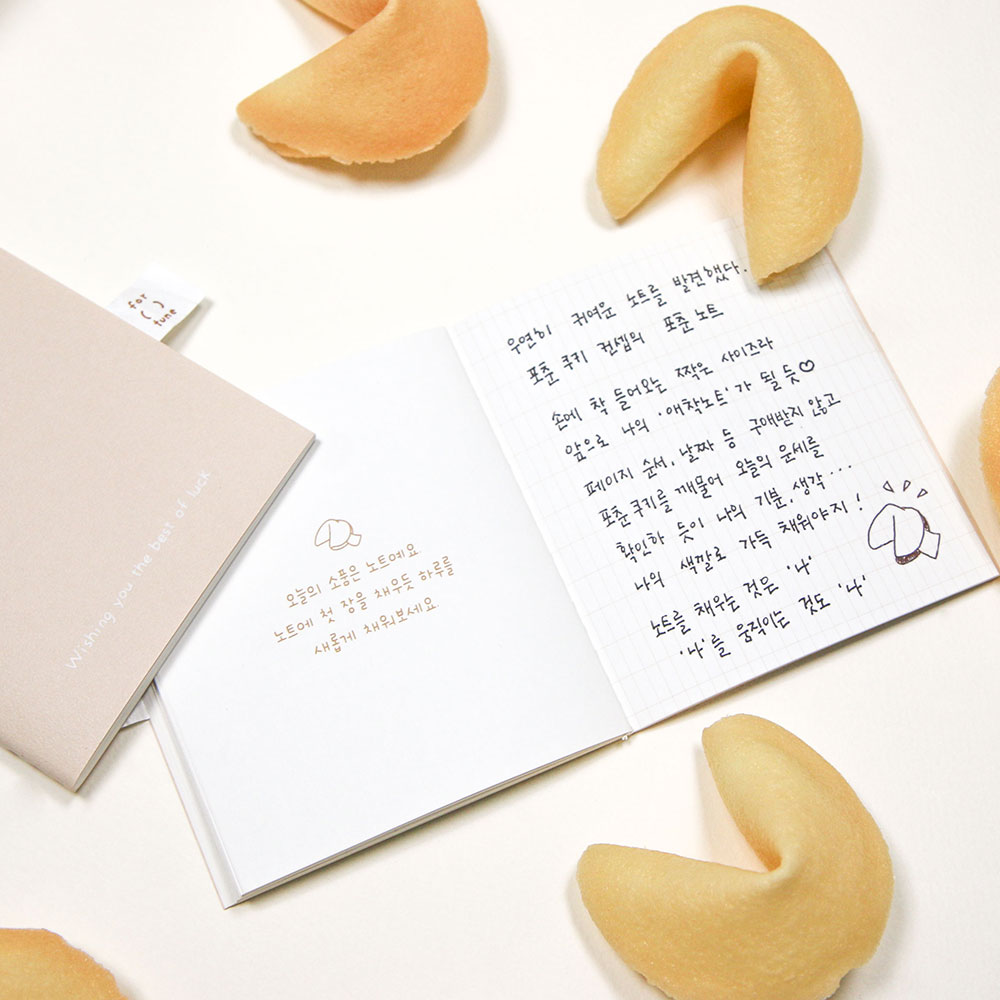 for
( )
tune
Wishing you the best of luck
오늘의 소풍은 노트예요.
노트에 첫 장을 채우듯 하루를
새롭게 채워보세요.
우연히 귀여운 노트를 발견했다.
포춘 쿠키 컨셉의 포춘 노트
손에 착 들어오는 짝은 사이즈라
앞으로 나의 '애착노트'가 될 듯♡
페이지 순서, 날짜 등 구애받지 않고
포춘쿠키를 깨물어 오늘의 운세를
확인하듯이 나의 기분, 생각...
나의 색깔로 가득 채워야지!
노트를 채우는 것은 '나'
'나'를 움직이는 것도 '나'